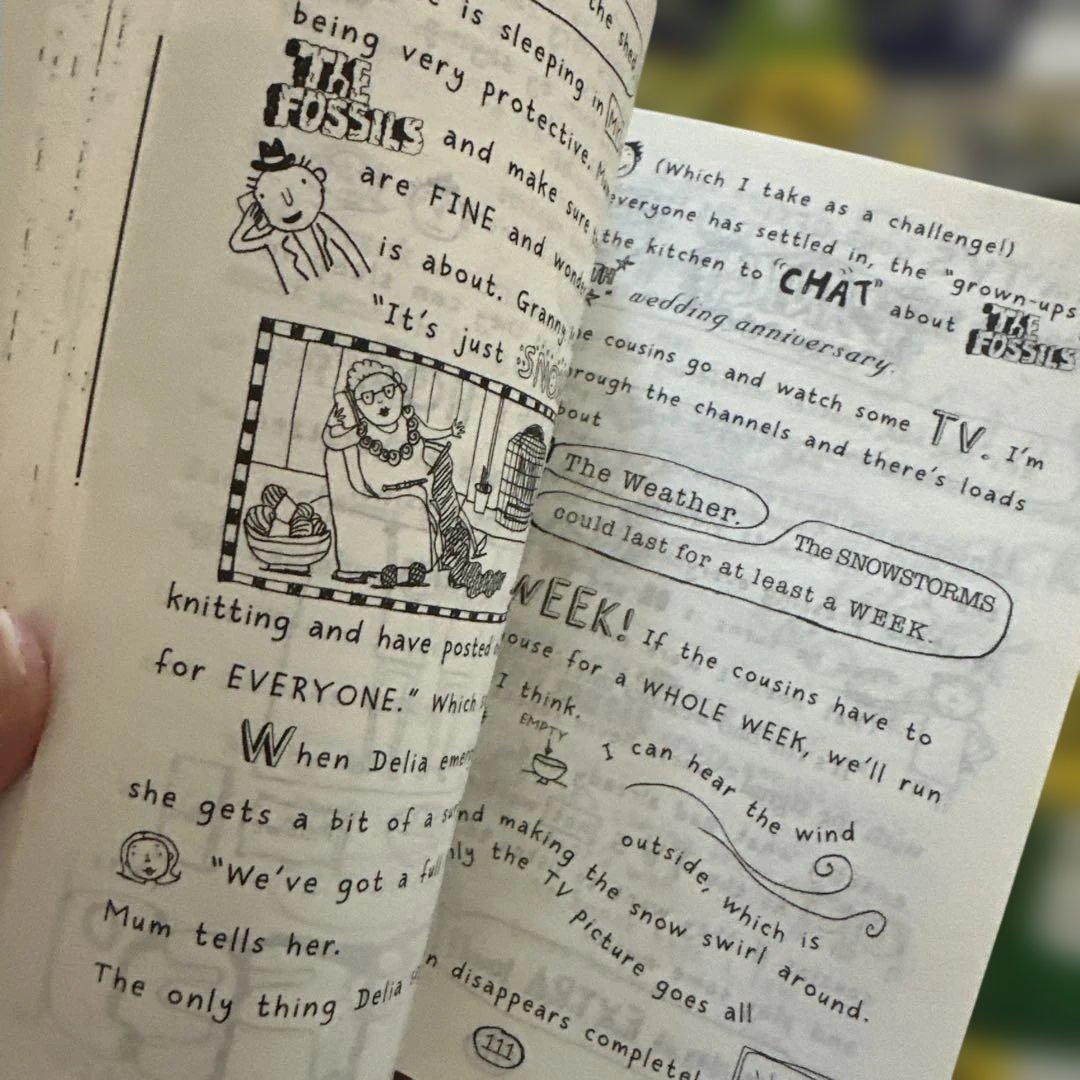 is sleeping in
being very protective.
THE
FOSSILS and make sure
are FINE and
is about. Granny
"It's just
knitting and have posted
for EVERYONE." Which
When Delia
she gets a bit of a
"We've got a full
Mum tells her.
The only thing Delia
the shed
(Which I take as a challenge!)
everyone has settled in, the "grown-ups"
the kitchen to "CHAT" about THE
FOSSILS
wedding anniversary.
cousins go and watch some TV. I'm
through the channels and there's loads
about
The Weather.
The SNOWSTORMS
could last for at least a WEEK.
WEEK! If the cousins have to
house for a WHOLE WEEK, we'll run
I think.
EMPTY
I can hear the wind
outside, which is
and making the snow swirl around.
the TV picture goes all
disappears
111